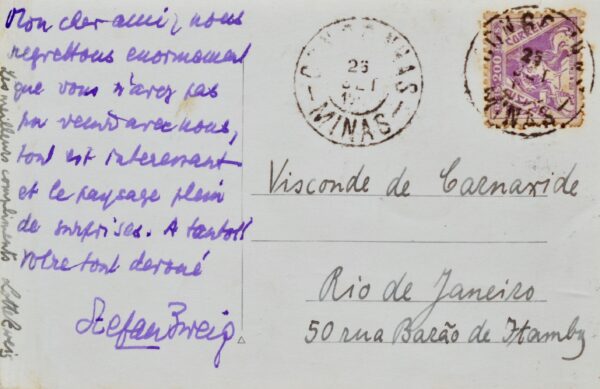 Mon cher ami, nous
regrettons enormement
que vous n'avez pas
pu venir avec nous,
tout est interessant
et le paysage plein
de surprises. A tantot!
Votre tout devoué
Stefan Zweig
Les meilleurs compliments Lotte Zweig
CONGONHAS
25
OUT
MINAS
200
25
MINAS
Visconde de Carnaxide
Rio de Janeiro
50 rua Barão de Itamby